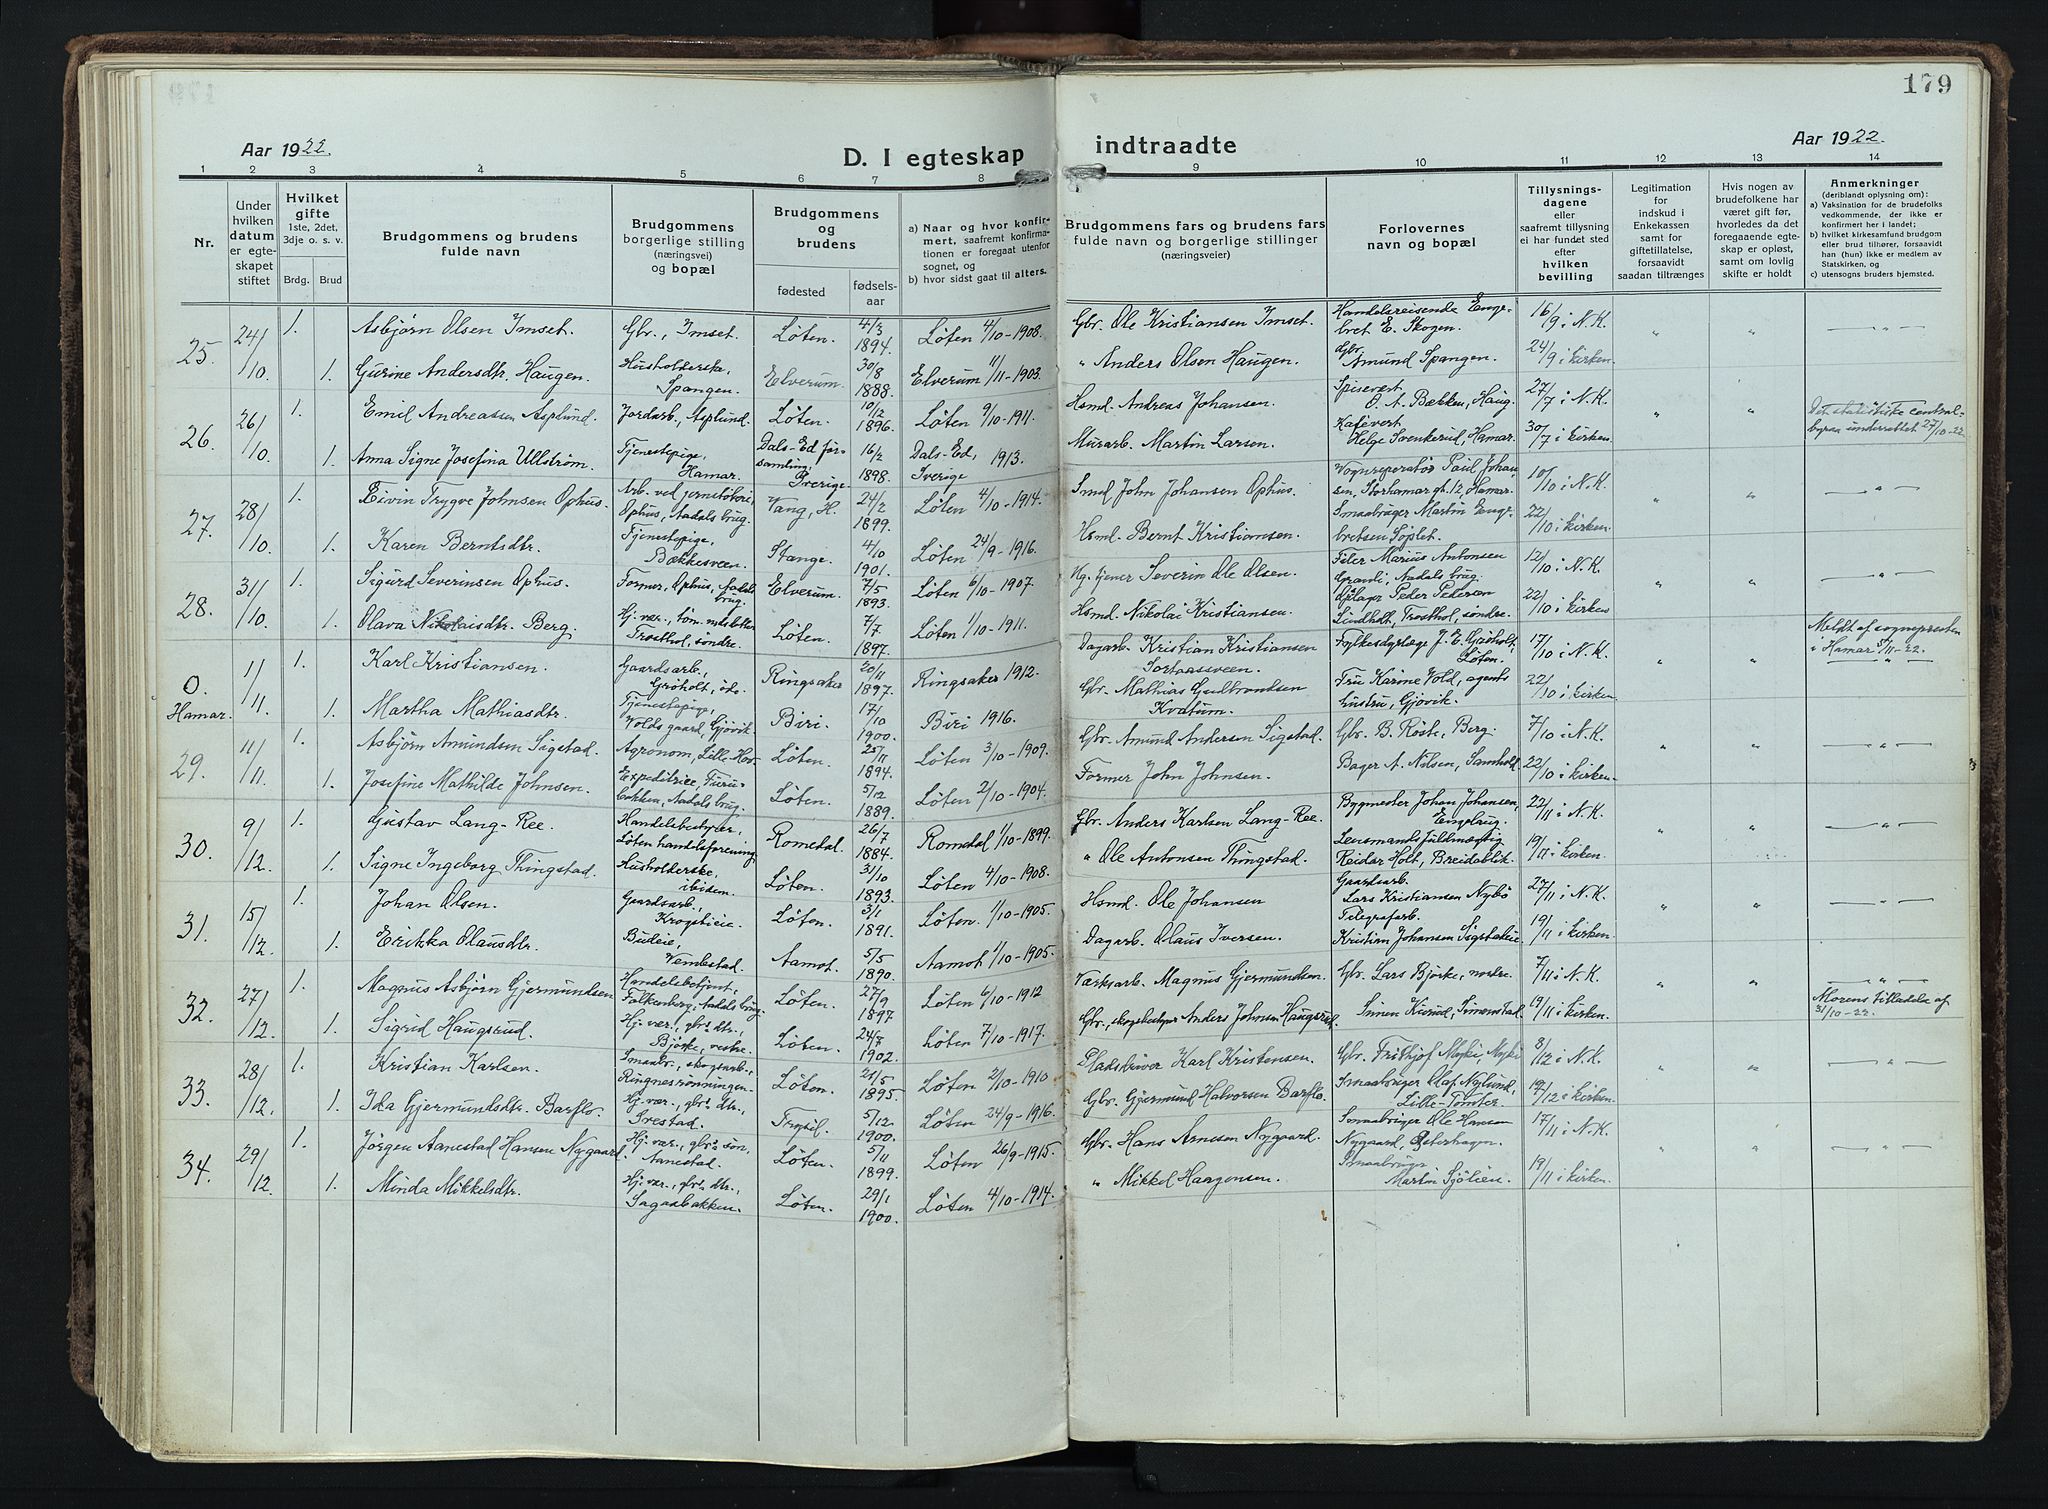 179
Aar 1922.
D. I egteskap indtraadte
Aar 1922.
1 2 3 4 5 6 7 8 9 10 11 12 13 14
Nr.
Under hvilken datum er egte-skapet stiftet
Hvilket gifte 1ste, 2det, 3dje o. s. v.
Brdg. Brud
Brudgommens og brudens fulde navn
Brudgommens borgerlige stilling (næringsvei) og bopæl
Brudgommens og brudens
fødested
fødsels-aar
a) Naar og hvor konfir-mert, saafremt konfirma-tionen er foregaat utenfor sognet, og
b) hvor sidst gaat til alters.
Brudgommens fars og brudens fars fulde navn og borgerlige stillinger (næringsveier)
Forlovernes navn og bopæl
Tillysnings-dagene eller saafremt tillysning ei har fundet sted efter hvilken bevilling
Legitimation for indskud i Enkekassen samt for giftetillatelse, forsaavidt saadan tiltrænges
Hvis nogen av brudefolkene har været gift før, hvorledes da det foregaaende egte-skap er opløst, samt om lovlig skifte er holdt
Anmerkninger (deriblandt oplysning om):
a) Vaksination for de brudefolks vedkommende, der ikke er konfirmert her i landet;
b) hvilket kirkesamfund brudgom eller brud tilhører, forsaavidt han (hun) ikke er medlem av Statskirken, og
c) utensogns bruders hjemsted.
25. 24/10 1. Asbjørn Olsen Imset. Gbr., Imset. Løten. 4/3 1894. Løten 4/10-1908. Gbr. Ole Kristiansen Imset. Handelsreisende Enge-bret E. Skogen. 16/9 i N.K. " "
1. Gurine Andersdtr. Haugen. Husholderske, Spangen. Elverum. 30/8 1888. Elverum 11/11-1903. " Anders Olsen Haugen. Gbr. Amund Spangen. 24/9 i kirken.
26. 26/10 1. Emil Andreassen Asplund. Jordarb., Asplund. Løten. 10/12 1896. Løten 9/10-1911. Hsmd. Andreas Johansen. Spisevert O. A. Bækken, Haug. 27/7 i N.K. " " Det statistiske central-byraa underrettet 27/10-22
1. Anna Signe Josefina Ullström. Tjenestepige, Hamar. Dals-Ed for-samling, Sverige. 16/2 1898. Dals-Ed, Sverige 1913. Murarb. Martin Larsen. Kafévert Helge Svenkerud, Hamar. 30/7 i kirken.
27. 28/10 1. Eivin Trygve Johnsen Ophus. Arb. ved jernstöberi, Ophus, Aadals brug. Vang, H. 24/2 1899. Løten 4/10-1914. Smed John Johansen Ophus. Vognreperatör Paul Johan-sen, Storhamar gt. 12, Hamar. 10/10 i N.K. " "
1. Karen Berntsdtr. Tjenestepige, Bækkesveen. Stange. 4/10 1901. Løten 24/9-1916. Hsmd. Bernt Kristiansen. Smaabruger Martin Enge-bretsen 22/10 i kirken.
28. 31/10 1. Sigurd Severinsen Ophus. Former, Ophus, Aadals brug. Elverum. 7/5 1893. Løten 6/10-1907. Severin Ole Olsen. Filer Marius Antonsen Grandi, Aadals brug. 12/10 i N.K. " "
1. Olava Nikolaisdtr. Berg. Hj. vær., Trosthol, söndre. Løten. 7/7 1897. Løten 1/10-1911. Hsmd. Nikolai Kristiansen. Peder Pedersen Lindholt, Trosthol, söndre. 22/10 i kirken
0. Hamar. 1/11 1. Karl Kristiansen. Gaardsarb., Grøholt, Ringsaker 20/11 1897. Ringsaker 1912. Dagarb. Kristian Kristiansen Fylkesdyrlæge J. E. Grøholt, Løten. 17/10 i N.K. " " Meldt af sognepresten i Hamar 3/11-22.
1. Martha Mathiasdtr. Tjenestepige, Volds gaard, Gjøvik. Biri. 17/10 1900. Biri 1916. Gbr. Mathias Gulbrandsen Kvatum. Fru Karine Vold, agents hustru, Gjøvik. 22/10 i kirken.
29. 11/11 1. Asbjørn Amundsen Sigstad. Agronom, Lille-Hov. Løten. 25/11 1894. Løten 3/10-1909. Gbr. Amund Andersen Sigstad. Gbr. B. Røste, Berg. 7/10 i N.K. " "
1. Josefine Mathilde Johnsen. Expeditrice, Furu-bakken, Aadals brug. Løten. 5/12 1889. Løten 2/10-1904. Former John Johnsen. Bager A. Nilsen, Samhold. 22/10 i kirken.
30. 9/12 1. Gustav Lang-Ree. Handelsbestyrer, Løten handelsforening Romedal. 26/7 1884. Romedal 1/10-1899. Gbr. Anders Karlsen Lang-Ree. Bygmester Johan Johansen, Englaug. 22/11 i N.K. " "
1. Signe Ingeborg Thingstad. Husholderske, ibidem. Løten. 31/10 1893. Løten 4/10-1908. " Ole Antonsen Thingstad. Lensmandsfuldmægtig Reidar Holt, Breidablik. 19/11 i kirken.
31. 15/12 1. Johan Olsen. Gaardsarb., Løten. 3/1 1891. Løten. 1/10-1905. Hsmd. Ole Johansen Gaardsarb. Lars Kristiansen Nybö 27/11 i N.K. " "
1. Erikka Olausdtr. Budeie, Vembestad. Aamot. 5/5 1890. Aamot 1/10-1905. Dagarb. Olaus Iversen. Telegrafarb. Kristian Johansen Sigstadeie 19/11 i kirken.
32. 27/12 1. Magnus Asbjørn Gjermundsen Handelsbetjent, Falkenberg, Aadals brug Løten. 27/9 1897 Løten 6/10-1912 Værksarb. Magnus Gjermundsen. Gbr. Lars Bjørke, nordre. 7/11 i N.K. " "
1. Sigrid Haugsrud. Hj. vær., gbr.s dtr., Bjørke, vestre. Løten. 24/8 1902. Løten 7/10-1917. Gbr., skogbestyrer Anders Johnsen Haugsrud. Simenstad. 19/11 i kirken. Morens tilladelse af 31/10-22.
33. 28/12 1. Kristian Karlsen. Smaabr., skogsarb., Ringnesrønningen. Løten. 21/5 1895. Løten 2/10-1910 Pladsdriver Karl Kristensen. Gbr. Frithjof Myki, Myki 8/12 i N.K. " "
1. Ida Gjermundsdtr. Barflo. Hj. vær., gbr.s dtr., Grestad. Trysil. 5/12 1900. Løten 24/9-1916. Gbr. Gjermund Halvorsen Barflo. Smaabruger Olaf Nylund, Lille-Tomter. 12/12 i kirken.
34. 29/12 1. Jörgen Aanestad Hansen Nygaard. Hj. vær., gbr.s sön, Aanestad. Løten. 5/11 1899. Løten 26/9-1915. Gbr. Hans Arnesen Nygaard. Smaabruger Ole Hansen Nygaard, Österhagen. 17/11 i N.K. " "
1. Minda Mikkelsdtr. Hj. vær., gbr.s dtr., Sagaabakken. Løten. 29/1 1900. Løten 4/10-1914. " Mikkel Haagensen. Smaabruger Martin Sjölien. 19/11 i kirken.